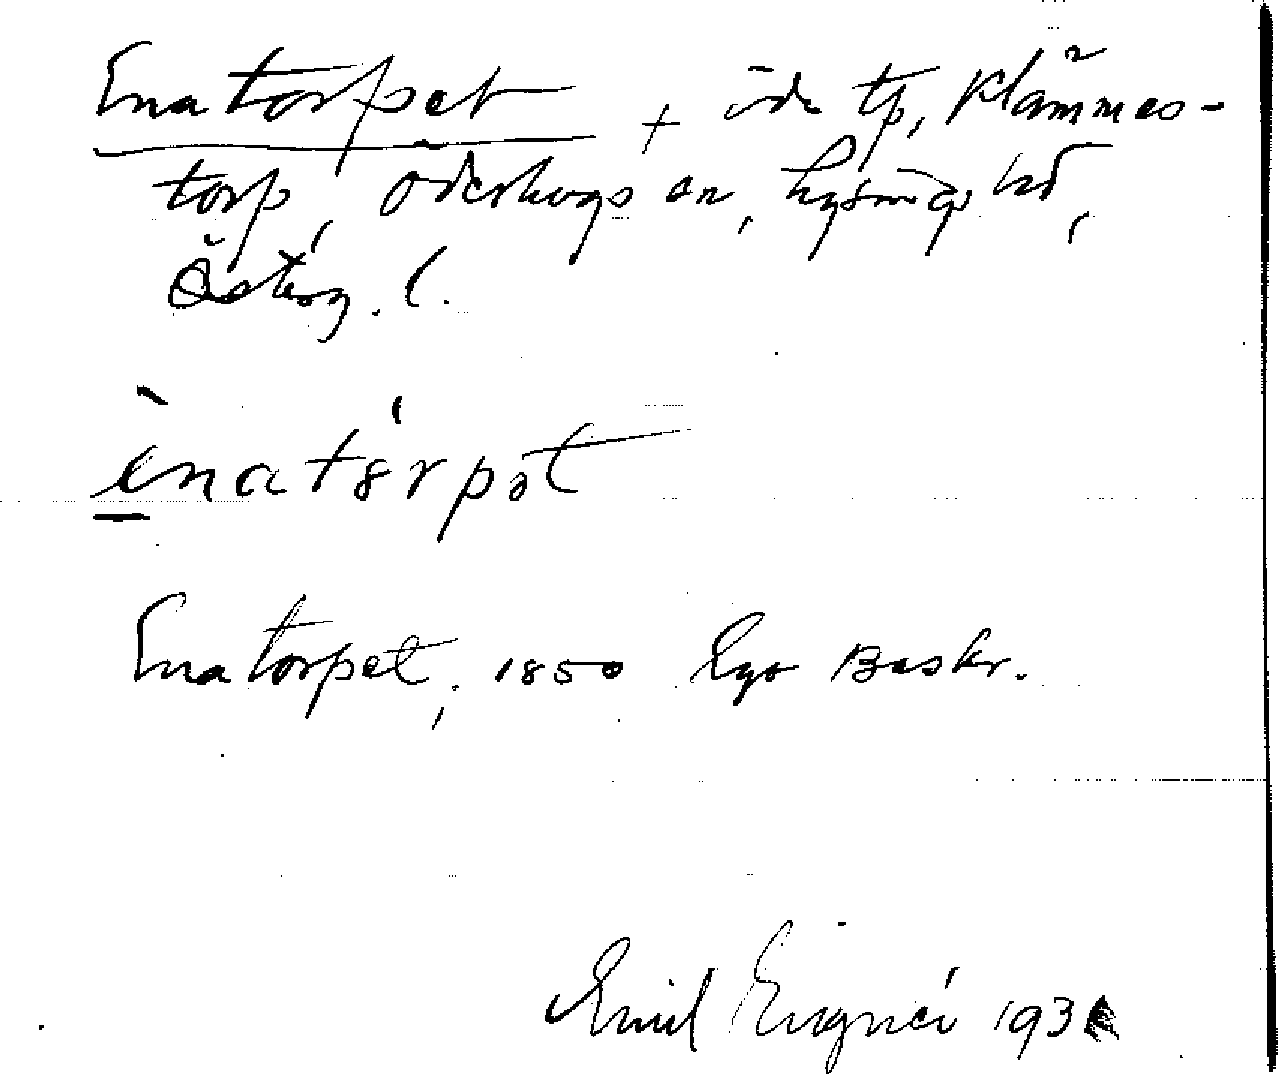 Enatorpet + öde tp, Klämmes-
torp, Ödeshögs sn, Lysings hd,
Östérg. l.
ènatórpət
Enatorpet, 1850 Ego Beskr.
Emil Engnér 193